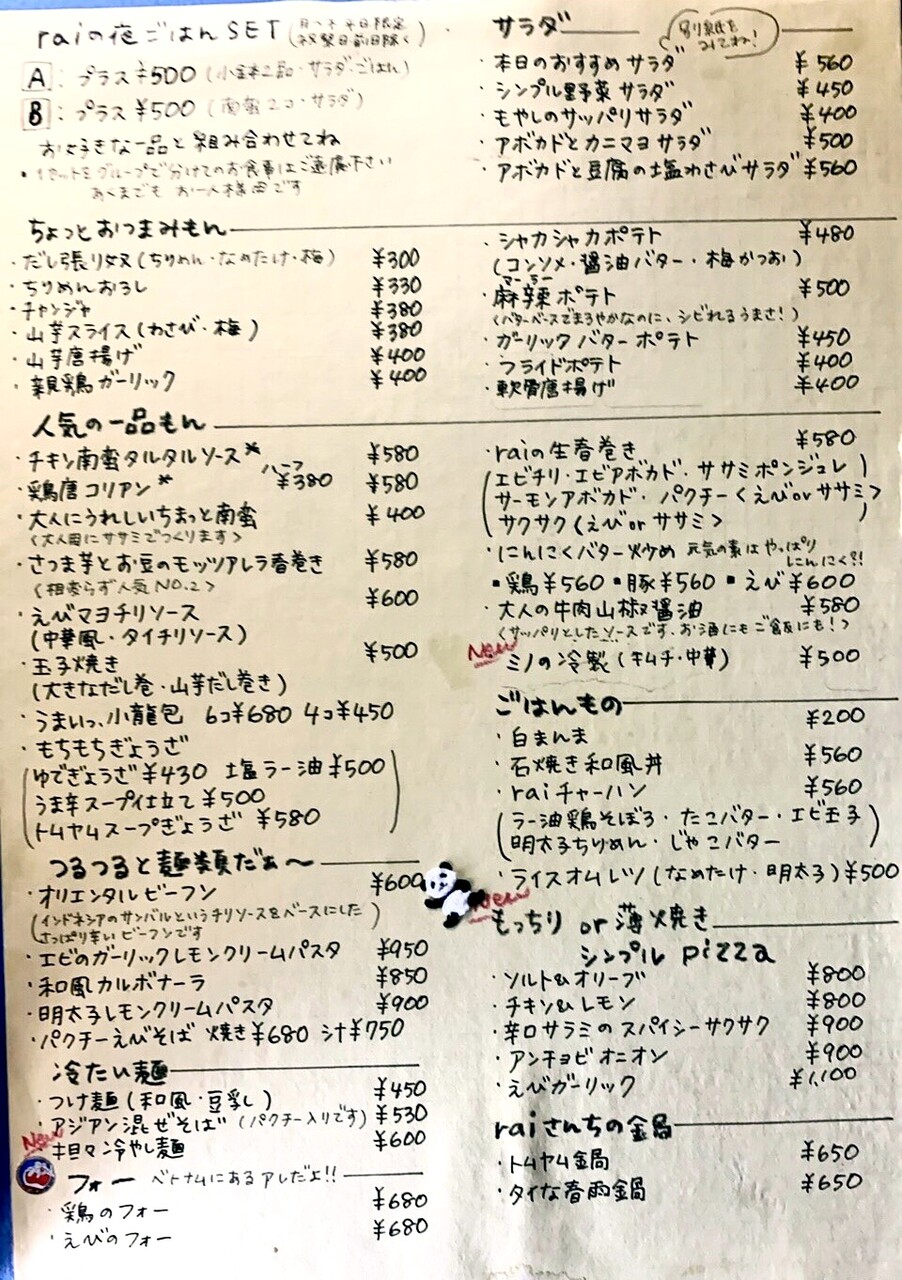 raiの夜ごはんSET (月〜木 平日限定
祝祭日前日除く)
A: プラス¥500 (小鉢2品・サラダ・ごはん)
B: プラス¥500 (南蛮2コ・サラダ)
お好きな一品と組み合わせてね
・1セットをグループで分けてのお食事はご遠慮下さい
あくまでも お一人様用です
サラダ 別紙を
みてね!
・本日のおすすめサラダ ¥560
・シンプル野菜サラダ ¥450
・もやしのサッパリサラダ ¥400
・アボカドとカニマヨサラダ ¥500
・アボカドと豆腐の塩わさびサラダ ¥560
ちょっとおつまみもん
・だし張り奴(ちりめん・なめたけ・梅) ¥300
・ちりめんおろし ¥330
・チャンジャ ¥380
・山芋スライス(わさび・梅) ¥380
・山芋唐揚げ ¥400
・親鶏ガーリック ¥400
・シャカシャカポテト ¥480
(コンソメ・醤油バター・梅かつお)
マーラー
・麻辣ポテト ¥500
(バターベースでまろやかなのに、シビれるうまさ!)
・ガーリックバターポテト ¥450
・フライドポテト ¥400
・軟骨唐揚げ ¥400
人気の一品もん
・チキン南蛮タルタルソース* ¥580
ハーフ
¥380
・鶏唐コリアン* ¥580
・大人にうれしいちょっと南蛮 ¥400
<大人用にササミでつくります>
・さつま芋とお豆のモッツァレラ春巻き ¥580
<相変らず人気NO.2>
・えびマヨチリソース ¥600
(中華風・タイチリソース)
・玉子焼き ¥500
(大きなだし巻・山芋だし巻き)
・うまいっ、小龍包 6コ¥680 4コ¥450
・もちもちぎょうざ
(ゆでぎょうざ¥430 塩ラー油¥500
うま辛スープ仕立て¥500
トムヤムスープぎょうざ ¥580)
・raiの生春巻き ¥580
(エビチリ・エビアボカド・ササミポンジュレ
サーモンアボカド・パクチー<えびorササミ>
サクサク<えびorササミ>)
・にんにくバター炒め 元気の素はやっぱり
にんにく!!
▪鶏¥560 ▪豚¥560 ▪えび¥600
・大人の牛肉山椒醤油 ¥580
<サッパリとしたソースです。お酒にもご飯にも!>
New
・ミノの冷製(キムチ・中華) ¥500
ごはんもの
・白まんま ¥200
・石焼き和風丼 ¥560
・raiチャーハン ¥560
(ラー油鶏そぼろ・たこバター・エビ玉子
明太子ちりめん・じゃこバター)
・ライスオムレツ(なめたけ・明太子)¥500
つるつると麺類だぁ〜
・オリエンタルビーフン ¥600
(インドネシアのサンバルというチリソースをベースにした
さっぱり辛いビーフンです)
・エビのガーリックレモンクリームパスタ ¥950
・和風カルボナーラ ¥850
・明太子レモンクリームパスタ ¥900
・パクチーえびそば 焼き¥680 汁¥750
New
もっちり or 薄焼き
シンプル pizza
・ソルト&オリーブ ¥800
・チキン&レモン ¥800
・辛口サラミのスパイシーサクサク ¥900
・アンチョビオニオン ¥900
・えびガーリック ¥1,100
冷たい麺
・つけ麺(和風・豆乳) ¥450
・アジアン混ぜそば (パクチー入りです) ¥530
New
・坦々冷やし麺 ¥600
フォー ベトナムにあるアレだよ!!
・鶏のフォー ¥680
・えびのフォー ¥680
raiさんちの金局
・トムヤム金局 ¥650
・タイな春雨金局 ¥650